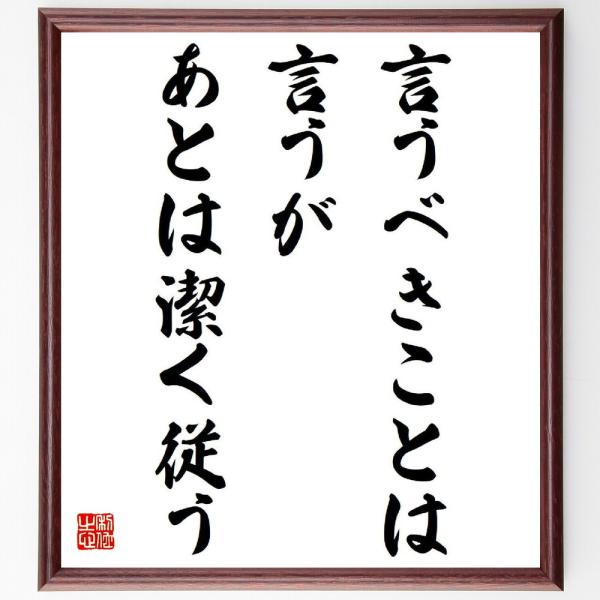 言うべきことは
言うが
あとは潔く従う